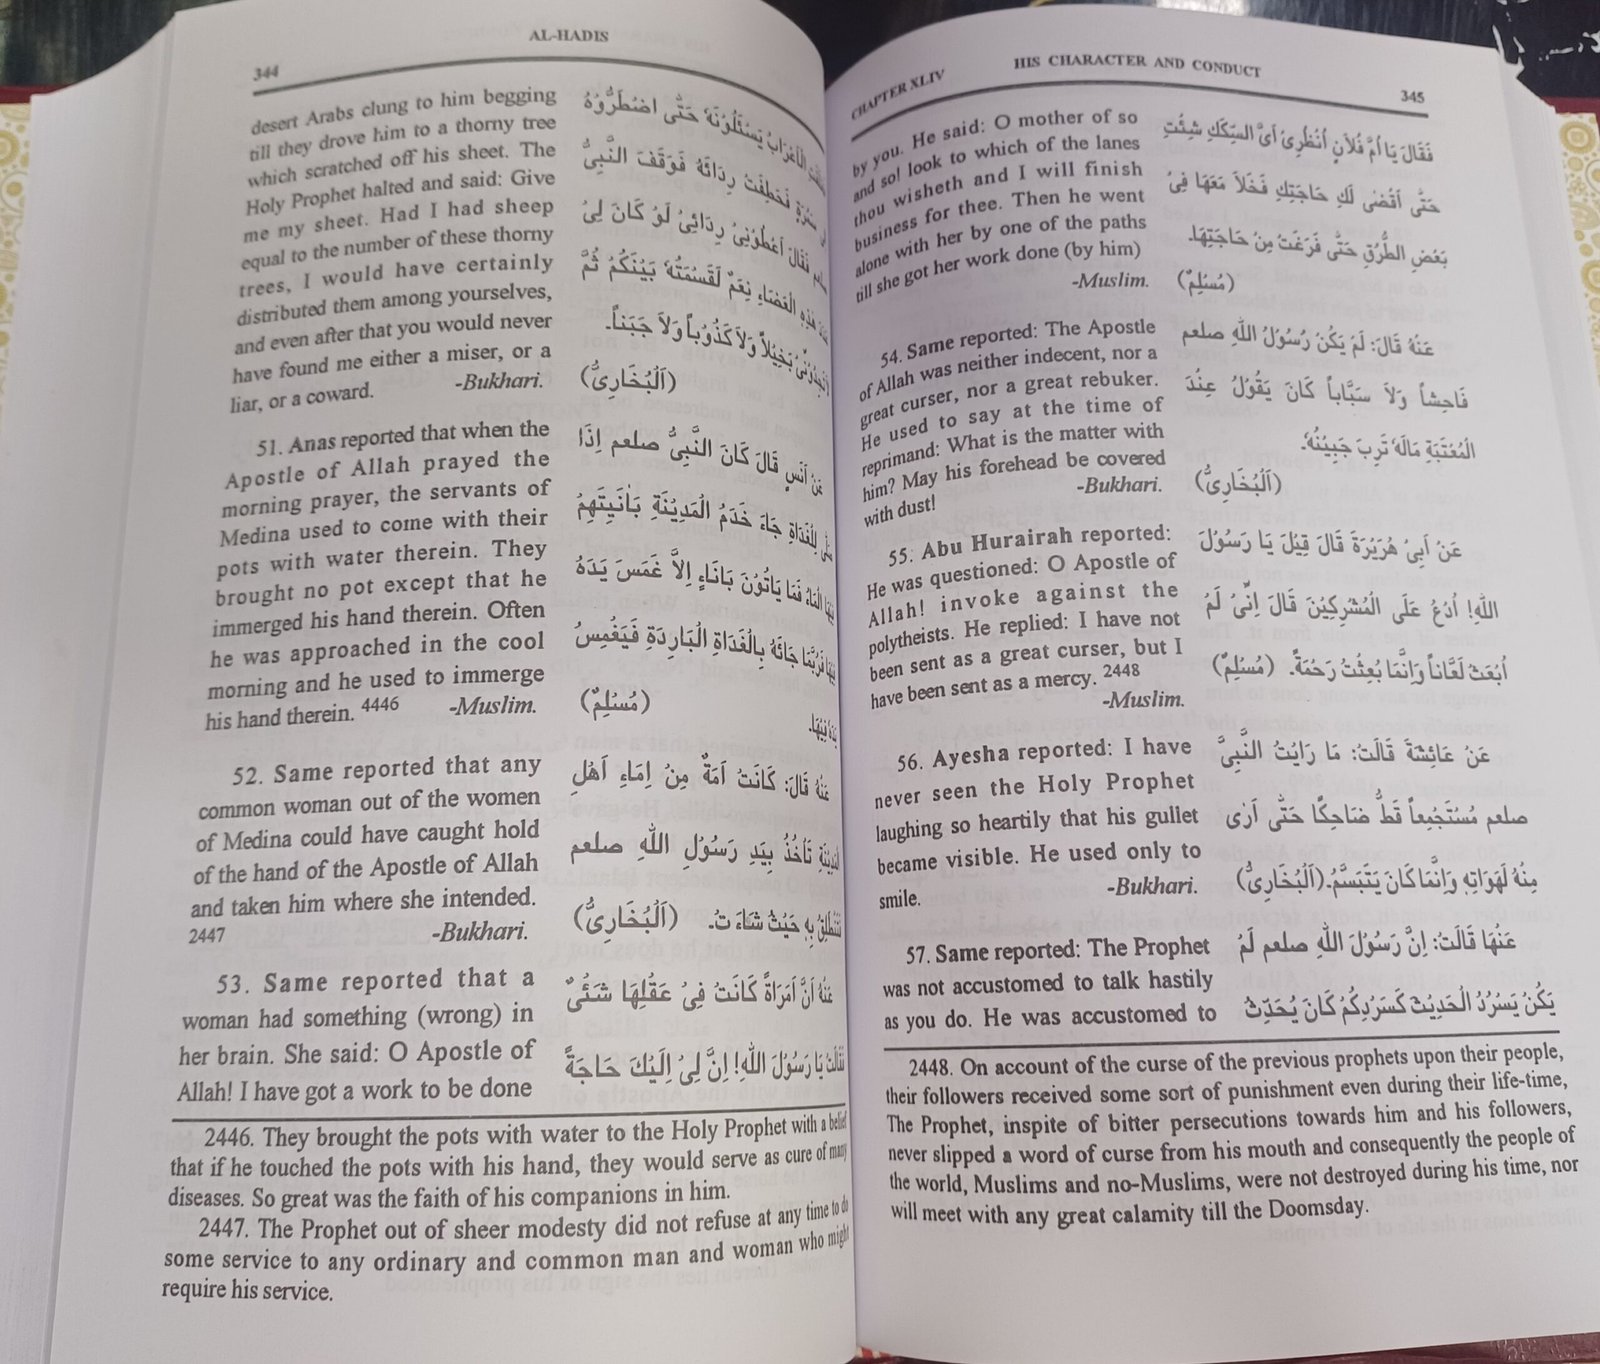 344
AL-HADIS
desert Arabs clung to him begging
till they drove him to a thorny tree
which scratched off his sheet. The
Holy Prophet halted and said: Give
me my sheet. Had I had sheep
equal to the number of these thorny
trees, I would have certainly
distributed them among yourselves,
and even after that you would never
have found me either a miser, or a
liar, or a coward. -Bukhari.
الْأَعْرَابُ يَسْئَلُوْنَهٗ حَتّٰى اضْطَرُّوْهُ
سَمُرَةٍ فَخَطِفَتْ رِدَائَهٗ فَوَقَفَ النَّبِىُّ
فَقَالَ اَعْطُوْنِىْ رِدَائِىْ لَوْ كَانَ لِىْ
هٰذِهِ الْعَضَاءِ نِعَمٌ لَقَسَمْتُهٗ بَيْنَكُمْ ثُمَّ
بَخِيْلًا وَلَا كَذُوْباً وَلَا جَبَناً.
(اَلْبُخَارِىُّ)
51. Anas reported that when the
Apostle of Allah prayed the
morning prayer, the servants of
Medina used to come with their
pots with water therein. They
brought no pot except that he
immerged his hand therein. Often
he was approached in the cool
morning and he used to immerge
his hand therein. 4446 -Muslim.
عَنْ اَنَسٍ قَالَ كَانَ النَّبِىُّ صلعم اِذَا
الْغَدَاةِ جَاءَ خَدَمُ الْمَدِيْنَةِ بِاٰنِيَتِهِمْ
الْمَاءُ فَمَا يَاتُوْنَ بِانَاءٍ اِلَّا غَمَسَ يَدَهٗ
فَرُبَّمَا جَائَهٗ بِالْغَدَاةِ الْبَارِدَةِ فَيَغْمِسُ
فِيْهَا. (مُسْلِمٌ)
52. Same reported that any
common woman out of the women
of Medina could have caught hold
of the hand of the Apostle of Allah
and taken him where she intended.
2447 -Bukhari.
عَنْهُ قَالَ: كَانَتْ اَمَةٌ مِنْ اِمَاءِ اَهْلِ
تَأْخُذُ بِيَدِ رَسُوْلِ اللّٰهِ صلعم
بِهٖ حَيْثُ شَاءَتْ. (اَلْبُخَارِىُّ)
53. Same reported that a
woman had something (wrong) in
her brain. She said: O Apostle of
Allah! I have got a work to be done
عَنْهُ اَنَّ اَمْرَاَةً كَانَتْ فِىْ عَقْلِهَا شَئْىٌ
يَا رَسُوْلَ اللّٰهِ! اِنَّ لِىْ اِلَيْكَ حَاجَةً
2446. They brought the pots with water to the Holy Prophet with a belief
that if he touched the pots with his hand, they would serve as cure of many
diseases. So great was the faith of his companions in him.
2447. The Prophet out of sheer modesty did not refuse at any time to do
some service to any ordinary and common man and woman who might
require his service.
CHAPTER XLIV
HIS CHARACTER AND CONDUCT
345
by you. He said: O mother of so
and so! look to which of the lanes
thou wisheth and I will finish
business for thee. Then he went
alone with her by one of the paths
till she got her work done (by him)
-Muslim.
فَقَالَ يَا اُمَّ فُلَانٍ اُنْظُرِىْ اَىَّ السِّكَكِ شِئْتِ
حَتّٰى اَقْضٰى لَكِ حَاجَتِكِ فَخَلَا مَعَهَا فِىْ
بَعْضِ الطُّرُقِ حَتّٰى فَرَغَتْ مِنْ حَاجَتِهَا.
(مُسْلِمٌ)
54. Same reported: The Apostle
of Allah was neither indecent, nor a
great curser, nor a great rebuker.
He used to say at the time of
reprimand: What is the matter with
him? May his forehead be covered
with dust! -Bukhari.
عَنْهُ قَالَ: لَمْ يَكُنْ رُسُوْلُ اللّٰهِ صلعم
فَاحِشاً وَلَا سَبَّاباً كَانَ يَقُوْلُ عِنْدَ
الْمُعْتَبَةِ مَالَهٗ تَرِبَ جَبِيْنُهٗ.
(اَلْبُخَارِىُّ)
55. Abu Hurairah reported:
He was questioned: O Apostle of
Allah! invoke against the
polytheists. He replied: I have not
been sent as a great curser, but I
have been sent as a mercy. 2448
-Muslim.
عَنْ اَبِىْ هُرَيْرَةَ قَالَ قِيْلَ يَا رَسُوْلَ
اللّٰهِ! اُدْعُ عَلَى الْمُشْرِكِيْنَ قَالَ اِنِّىْ لَمْ
اُبْعَثْ لَعَّاناً وَاِنَّمَا بُعِثْتُ رَحْمَةً. (مُسْلِمٌ)
56. Ayesha reported: I have
never seen the Holy Prophet
laughing so heartily that his gullet
became visible. He used only to
smile. -Bukhari.
عَنْ عَائِشَةَ قَالَتْ: مَا رَايْتُ النَّبِىَّ
صلعم مُسْتَجْمِعاً قَطُّ ضَاحِكًا حَتّٰى اَرٰى
مِنْهُ لَهَوَاتِهٖ وَاِنَّمَا كَانَ يَتَبَسَّمُ.(اَلْبُخَارِىُّ)
57. Same reported: The Prophet
was not accustomed to talk hastily
as you do. He was accustomed to
عَنْهَا قَالَتْ: اِنَّ رَسُوْلَ اللّٰهِ صلعم لَمْ
يَكُنْ يَسْرُدُ الْحَدِيْثَ كَسَرْدِكُمْ كَانَ يُحَدِّثُ
2448. On account of the curse of the previous prophets upon their people,
their followers received some sort of punishment even during their life-time,
The Prophet, inspite of bitter persecutions towards him and his followers,
never slipped a word of curse from his mouth and consequently the people of
the world, Muslims and no-Muslims, were not destroyed during his time, nor
will meet with any great calamity till the Doomsday.